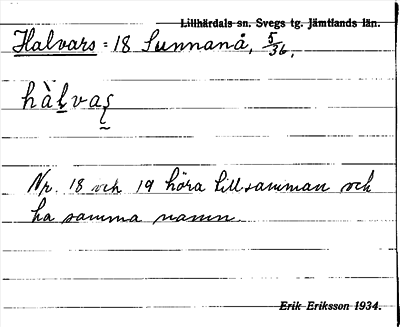 Lillhärdals sn. Svegs tg. Jämtlands län.
Halvars = 18 Sunnanå, 5/36.
hàḷvaʂ
Nr. 18 och 19 höra till samman och
ha samma namn.
Erik Eriksson 1934.